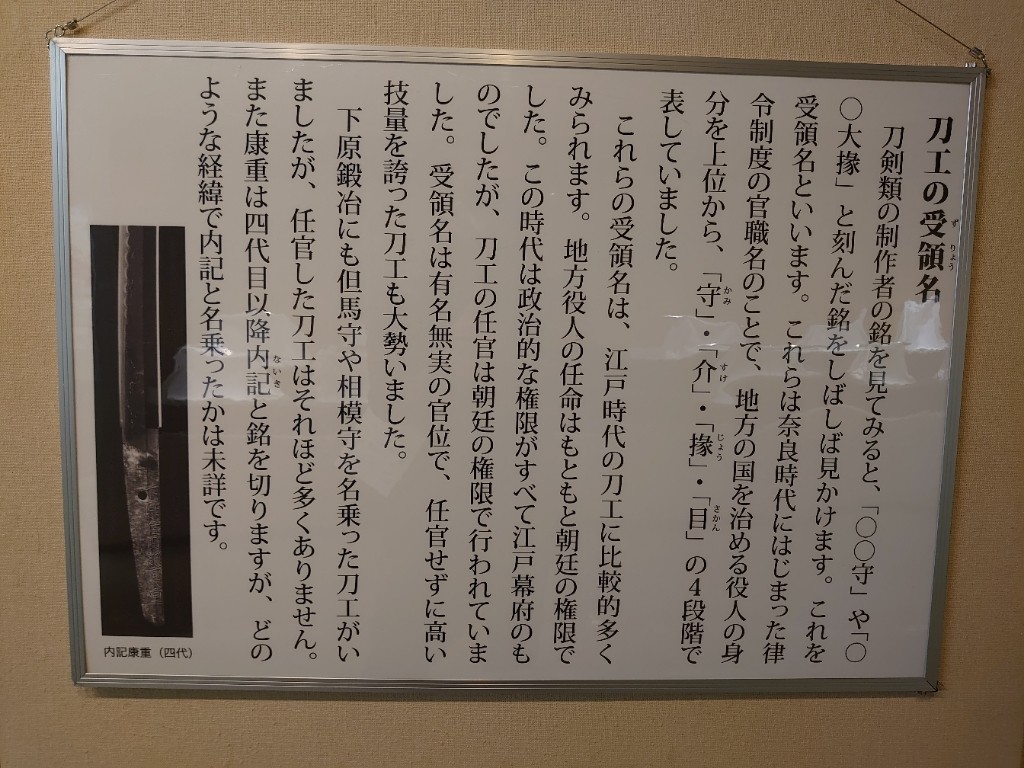 刀工の受領名
ずりょう
刀剣類の制作者の銘を見てみると、「〇〇守」や「〇
〇大掾」と刻んだ銘をしばしば見かけます。これを
受領名といいます。これらは奈良時代にはじまった律
令制度の官職名のことで、地方の国を治める役人の身
分を上位から、「守」・「介」・「掾」・「目」の4段階で
かみ すけ じょう さかん
表していました。
これらの受領名は、江戸時代の刀工に比較的多く
みられます。地方役人の任命はもともと朝廷の権限で
した。この時代は政治的な権限がすべて江戸幕府のも
のでしたが、刀工の任官は朝廷の権限で行われていま
した。受領名は有名無実の官位で、任官せずに高い
技量を誇った刀工も大勢いました。
下原鍛冶にも但馬守や相模守を名乗った刀工がい
ましたが、任官した刀工はそれほど多くありません。
また康重は四代目以降内記と銘を切りますが、どの
ないき
ような経緯で内記と名乗ったかは未詳です。
内記康重（四代）